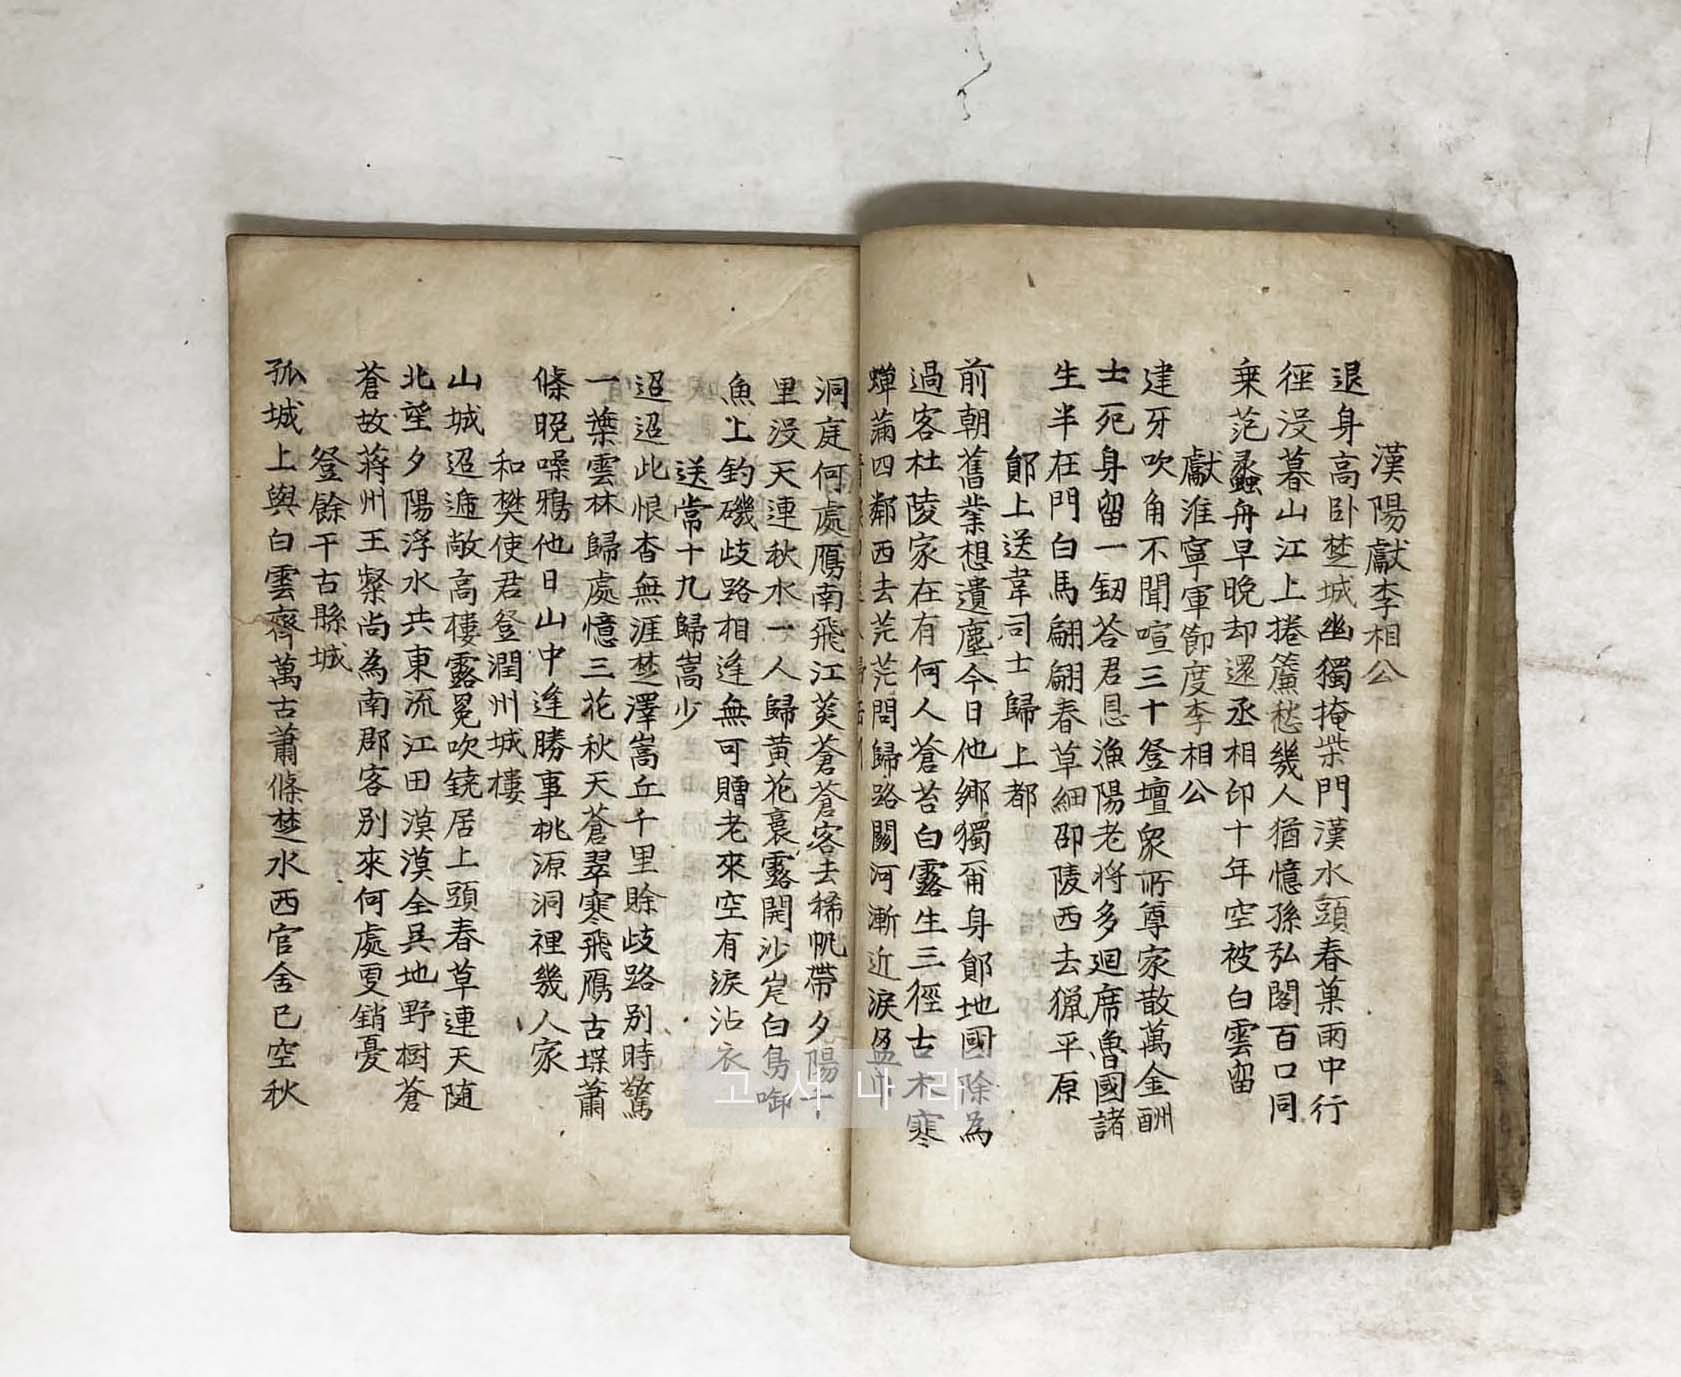 漢陽獻李相公
退身高卧楚城幽獨掩柴門漢水頭春菓雨中行
徑沒暮山江上捲簾愁幾人猶憶孫弘閣百口同
乗范蠡舟早晚却還丞相印十年空被白雲留
獻淮寧軍節度李相公
建牙吹角不聞喧三十登壇衆所尊家散萬金酬
士死身留一釰荅君恩漁陽老将多迴席魯國諸
生半在門白馬翩翩春草細邵陵西去猟平原
鄖上送韋司士歸上都
前朝舊業想遺塵今日他鄉獨甭身鄖地國除為
過客杜陵家在有何人蒼苔白露生三徑古木寒
蟬蒲四鄰西去茫茫問歸路關河漸近淚
洞庭何處鴈南飛江茭蒼蒼客去稀帆帶夕陽千
里沒天連秋水一人歸黄花裛露開沙岸白鳥啣
魚上釣磯歧路相逢無可贈老來空有淚沾衣
送常十九歸嵩少
迢迢此恨杳無涯楚澤嵩丘千里賖歧路别時驚
一葉雲林歸處憶三花秋天蒼翠寒飛鴈古堞蕭
條晚噪鴉他日山中逢勝事桃源洞裡幾人家
和樊使君登潤州城樓
山城迢遞敞高樓露冕吹鐃居上頭春草連天随
北望夕陽浮水共東流江田漠漠全吴地野樹蒼
蒼故蔣州王粲尚為南郡客别來何處更銷憂
登餘干古縣城
孤城上與白雲齊萬古蕭條楚水西官舍已空秋
고서나라